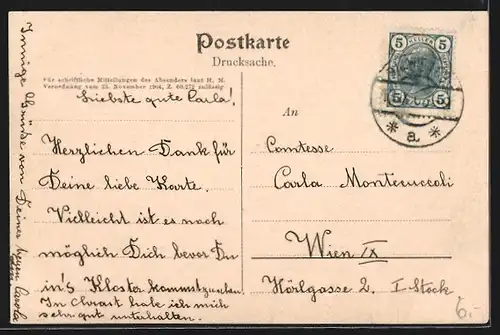 Postkarte
Drucksache.
Für schriftliche Mitteilungen des Absenders laut H. M.
Verordnung vom 25. November 1904, Z. 60.272 zulässig
Liebste gute Carla!
Herzlichen Dank für
Deine liebe Karte.
Vielleicht ist es noch
möglich Dich bevor Du
in's Kloster kommst zu sehen.
In Chrast habe ich mich
sehr gut unterhalten.
Innige Grüße von Deiner treuen Carola
An
Comtesse
Carla Montecuccoli
Wien IX
Hörlgasse 2. I-Stock
5 HELLER 5
5 5
* a *
6.-